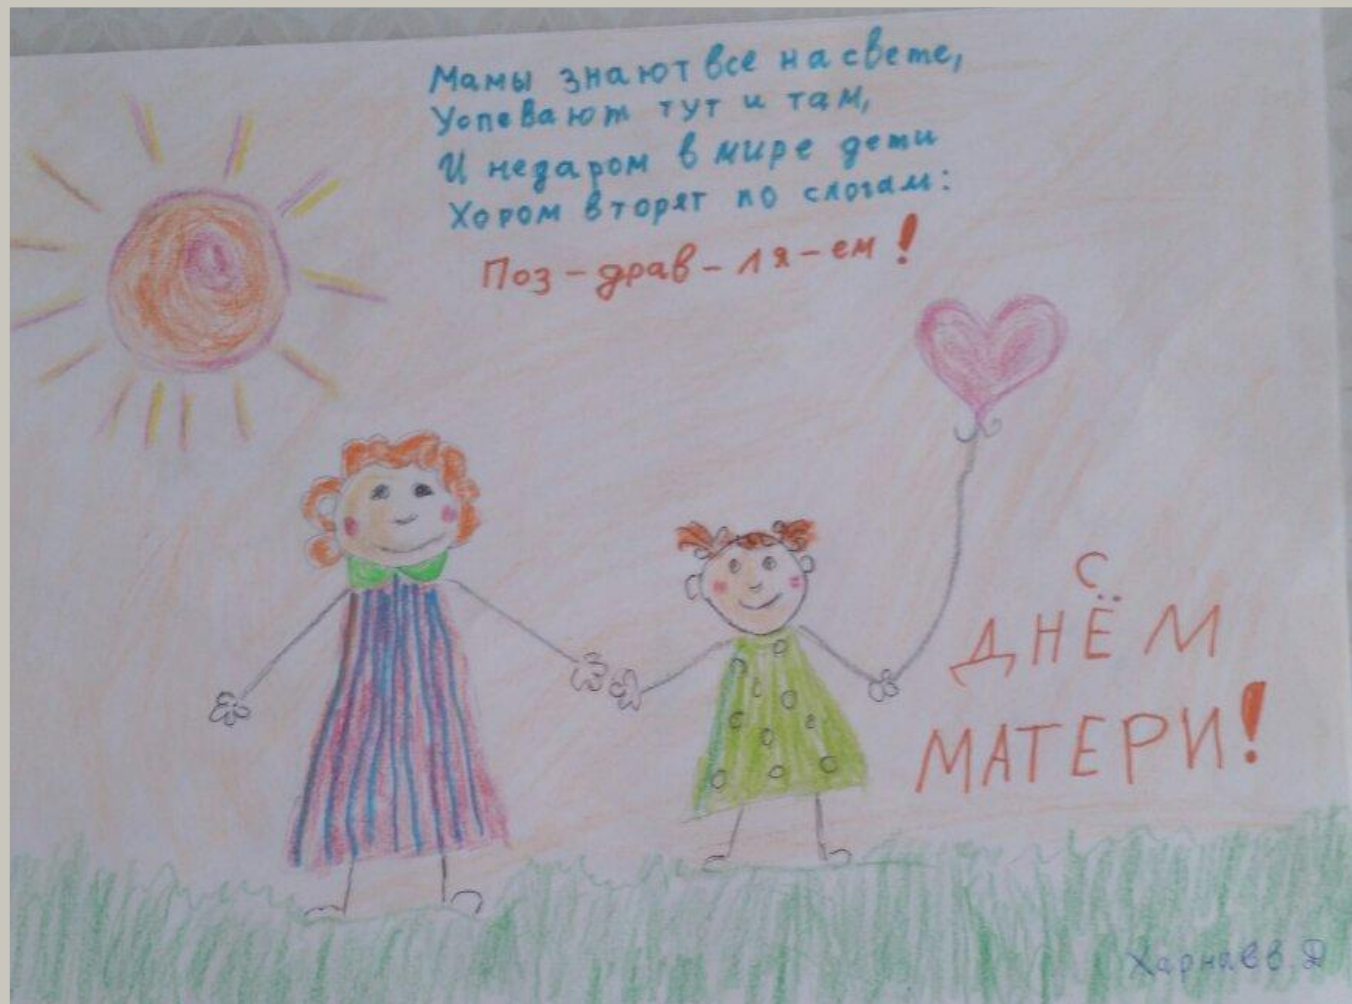 Мамы знают все на свете,
Успевают тут и там,
И недаром в мире дети
Хором вторят по слогам:
Поз-драв-ля-ем!
С
ДНЁМ
МАТЕРИ!
Харнавв.Д